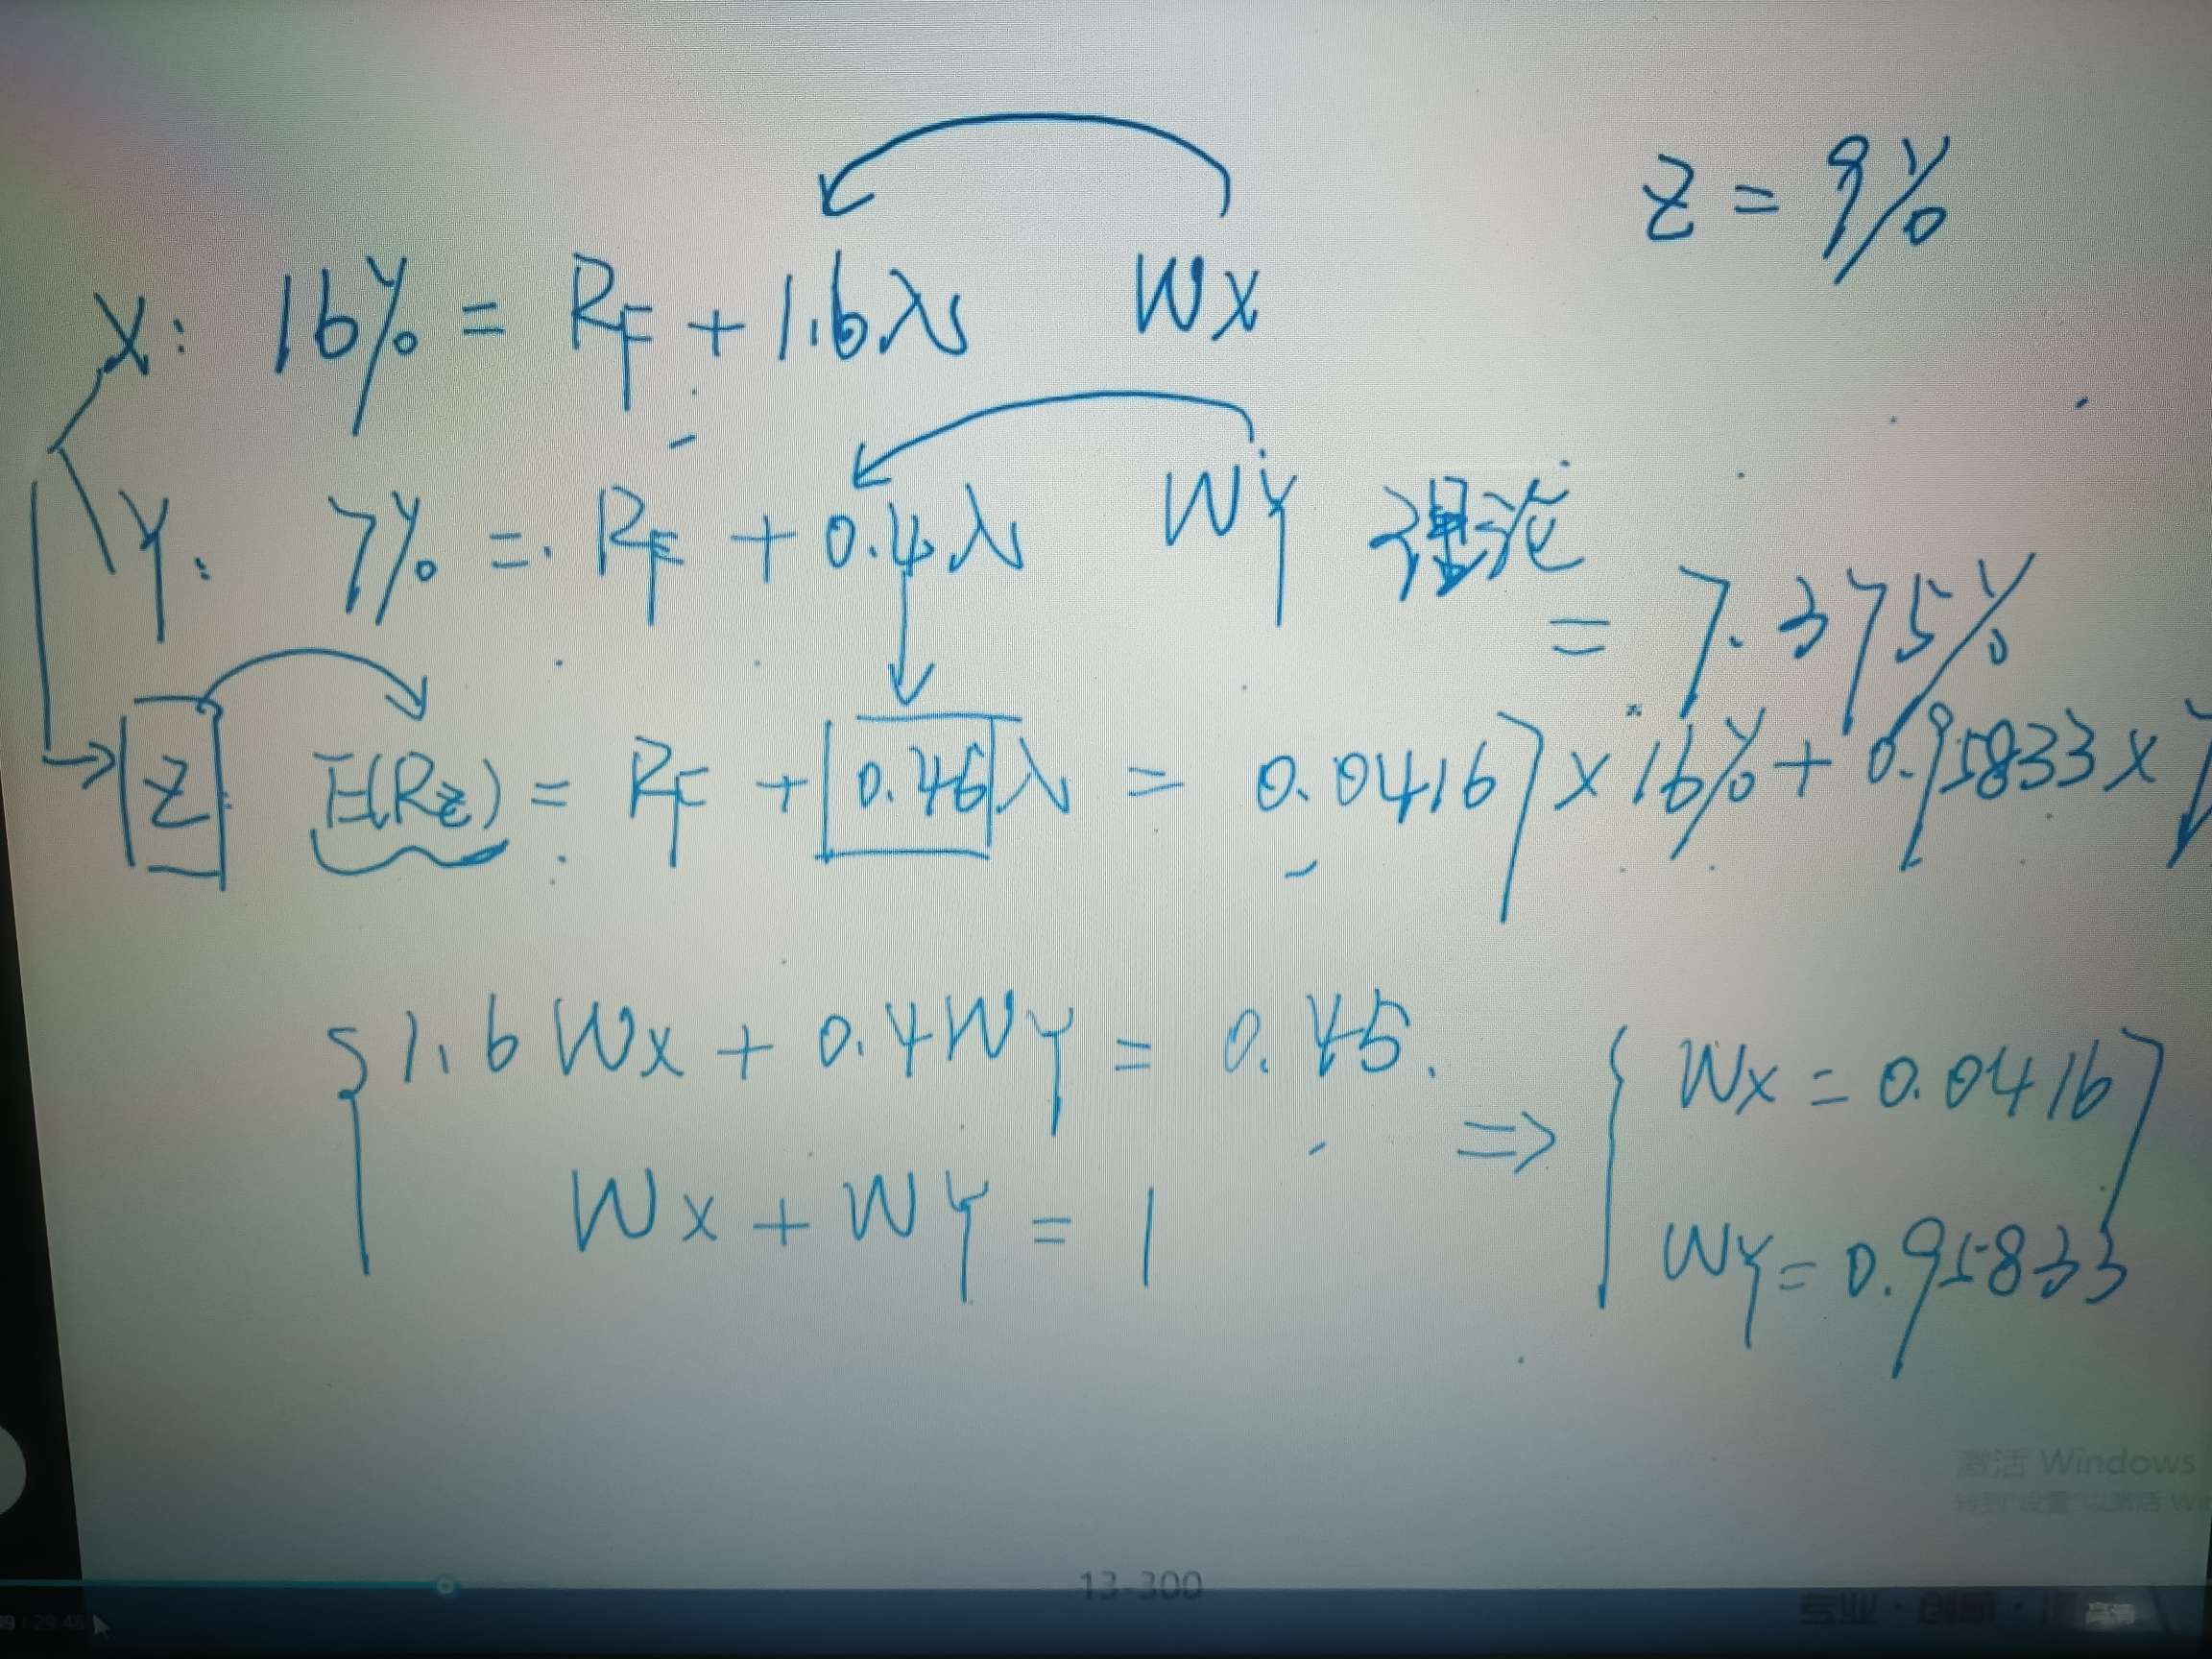 Z = 9%
X: 16% = RF + 1.6λ WX
Y: 7% = RF + 0.4λ WY 理论
= 7.375%
Z: E(RZ) = RF + 0.45λ = 0.04167 × 16% + 0.95833 × 7
1.6 WX + 0.4WY = 0.45.
WX + WY = 1
⇒ WX = 0.04167
WY = 0.95833
激活 Windows
13-300
29:45
专业 · 创新 ·